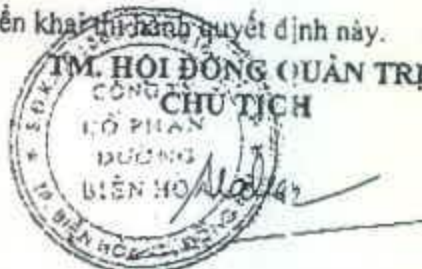 ển khai thi hành quyết định này.
TM. HỘI ĐỒNG QUẢN TRỊ
CHỦ TỊCH
CÔNG TY
CỔ PHẦN
ĐƯỜNG
BIÊN HÒA